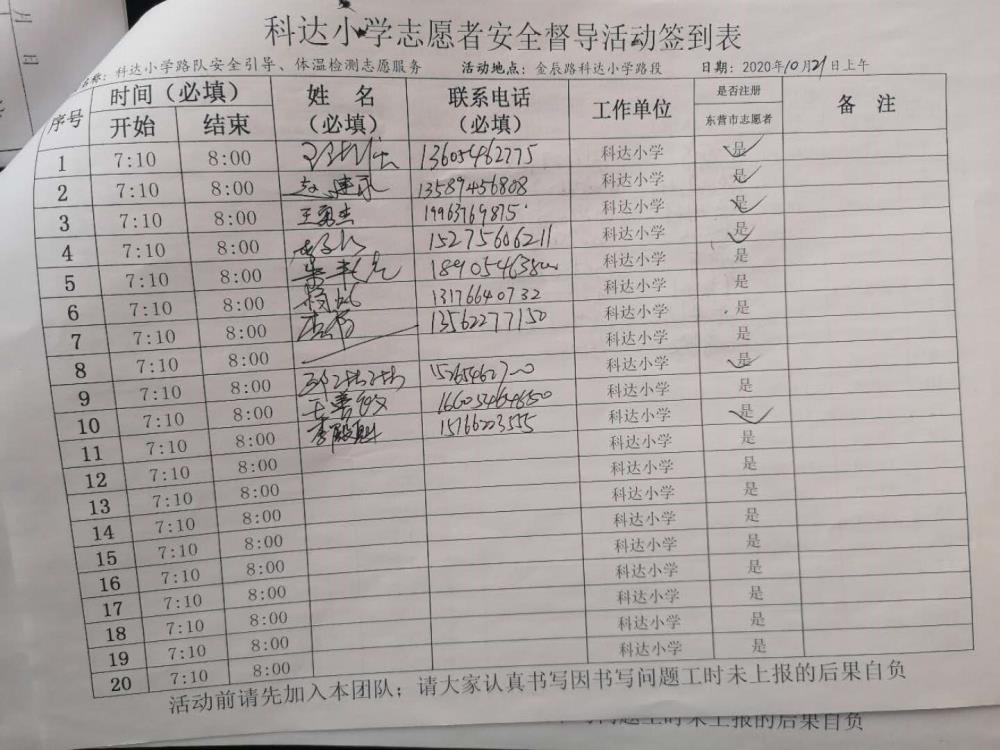 科达小学志愿者安全督导活动签到表
名称：科达小学路队安全引导、体温检测志愿服务 活动地点：金辰路科达小学路段 日期：2020年10月21日上午
序号 时间（必填） 姓 名（必填） 联系电话（必填） 工作单位 是否注册东营市志愿者 备 注
开始 结束
1 7:10 8:00 13605462775 科达小学 是
2 7:10 8:00 赵建民 13589456808 科达小学 是
3 7:10 8:00 王勇杰 19963769875 科达小学 是
4 7:10 8:00 15275606211 科达小学 是
5 7:10 8:00 科达小学 是
6 7:10 8:00 13176640732 科达小学 是
7 7:10 8:00 13562277150 科达小学 是
8 7:10 8:00 科达小学 是
9 7:10 8:00 科达小学 是
10 7:10 8:00 科达小学 是
11 7:10 8:00 李殿魁 15166203555 科达小学 是
12 7:10 8:00 科达小学 是
13 7:10 8:00 科达小学 是
14 7:10 8:00 科达小学 是
15 7:10 8:00 科达小学 是
16 7:10 8:00 科达小学 是
17 7:10 8:00 科达小学 是
18 7:10 8:00 科达小学 是
19 7:10 8:00 科达小学 是
20 7:10 8:00 科达小学 是
活动前请先加入本团队；请大家认真书写因书写问题工时未上报的后果自负
问题工时未上报的后果自负